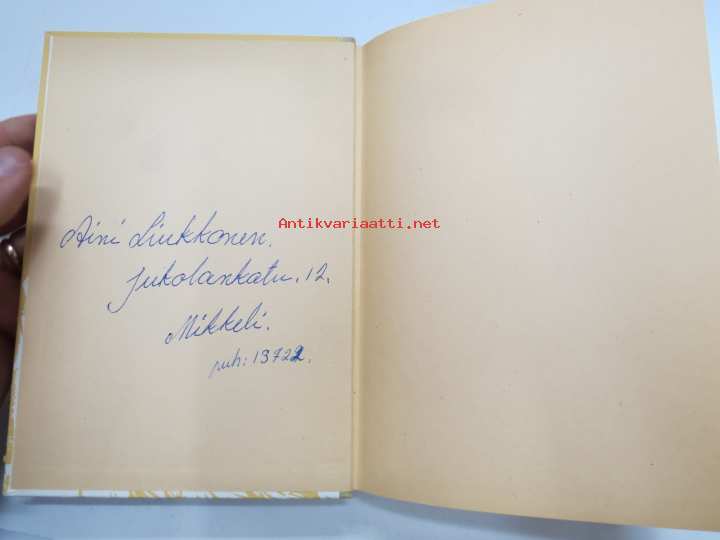 Antikvariaatti.net
Aini Liukkonen.
Jukolankatu. 12.
Mikkeli.
puh: 13722.